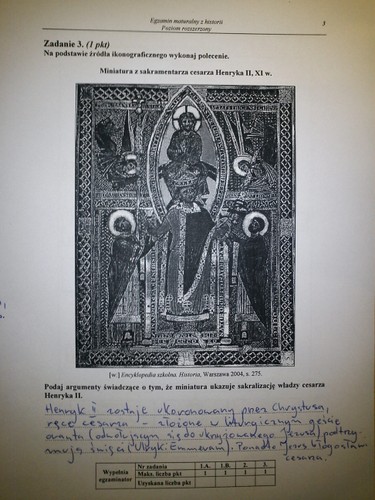 Egzamin maturalny z historii
Poziom rozszerzony
3
Zadanie 3. (1 pkt)
Na podstawie źródła ikonograficznego wykonaj polecenie.
Miniatura z sakramentarza cesarza Henryka II, XI w.
[w:] Encyklopedia szkolna. Historia, Warszawa 2004, s. 275.
Podaj argumenty świadczące o tym, że miniatura ukazuje sakralizację władzy cesarza
Henryka II.
Henryk II zostaje ukoronowany przez Chrystusa,
ręce cesarza – złożone w liturgicznym geście
oranta (odwołującym się do ukrzyżowanego Jezusa) podtrzy-
mują święci (Ulryk i Emmeram). Ponadto Jezus błogosławi
cesarza.
Wypełnia
egzaminator
Nr zadania 1.A. 1.B. 2. 3.
Maks. liczba pkt 1 1 1 1
Uzyskana liczba pkt